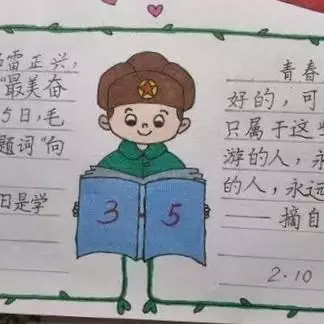 雷正兴,
"最美奋
5日,毛
题词"向
日是学
3·5
青春
好的,可
只属于这些
游的人,永
的人,永远
——摘自
2.10